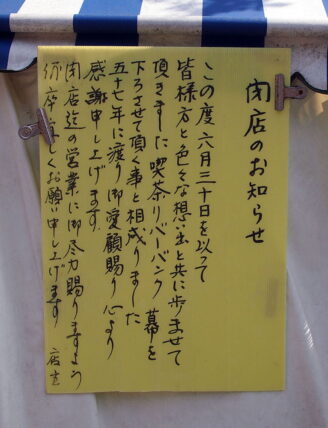 閉店のお知らせ
この度六月三十日を以って
皆様方と色々な想い出と共に歩ませて
頂きました喫茶リバーバンク 幕を
下ろさせて頂く事と相成りました
五十七年に渡り御愛顧賜り心より
感謝申し上げます
閉店迄の営業に御尽力賜りますよう
くお願い申し上げます 店主